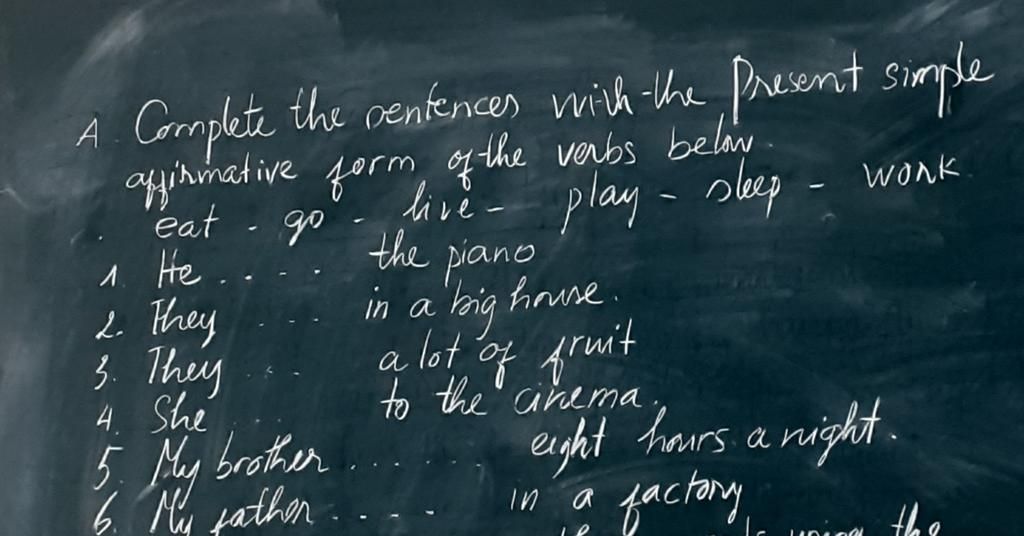 A. Complete the sentences with the Present simple
affirmative form of the verbs below.
. eat - go - live - play - sleep - work
1. He . . . . the piano
2. They . . . . in a big house.
3. They . . . a lot of fruit
4. She . . . to the cinema.
5. My brother . . . . . . . eight hours a night.
6. My father . . . . in a factory
using the